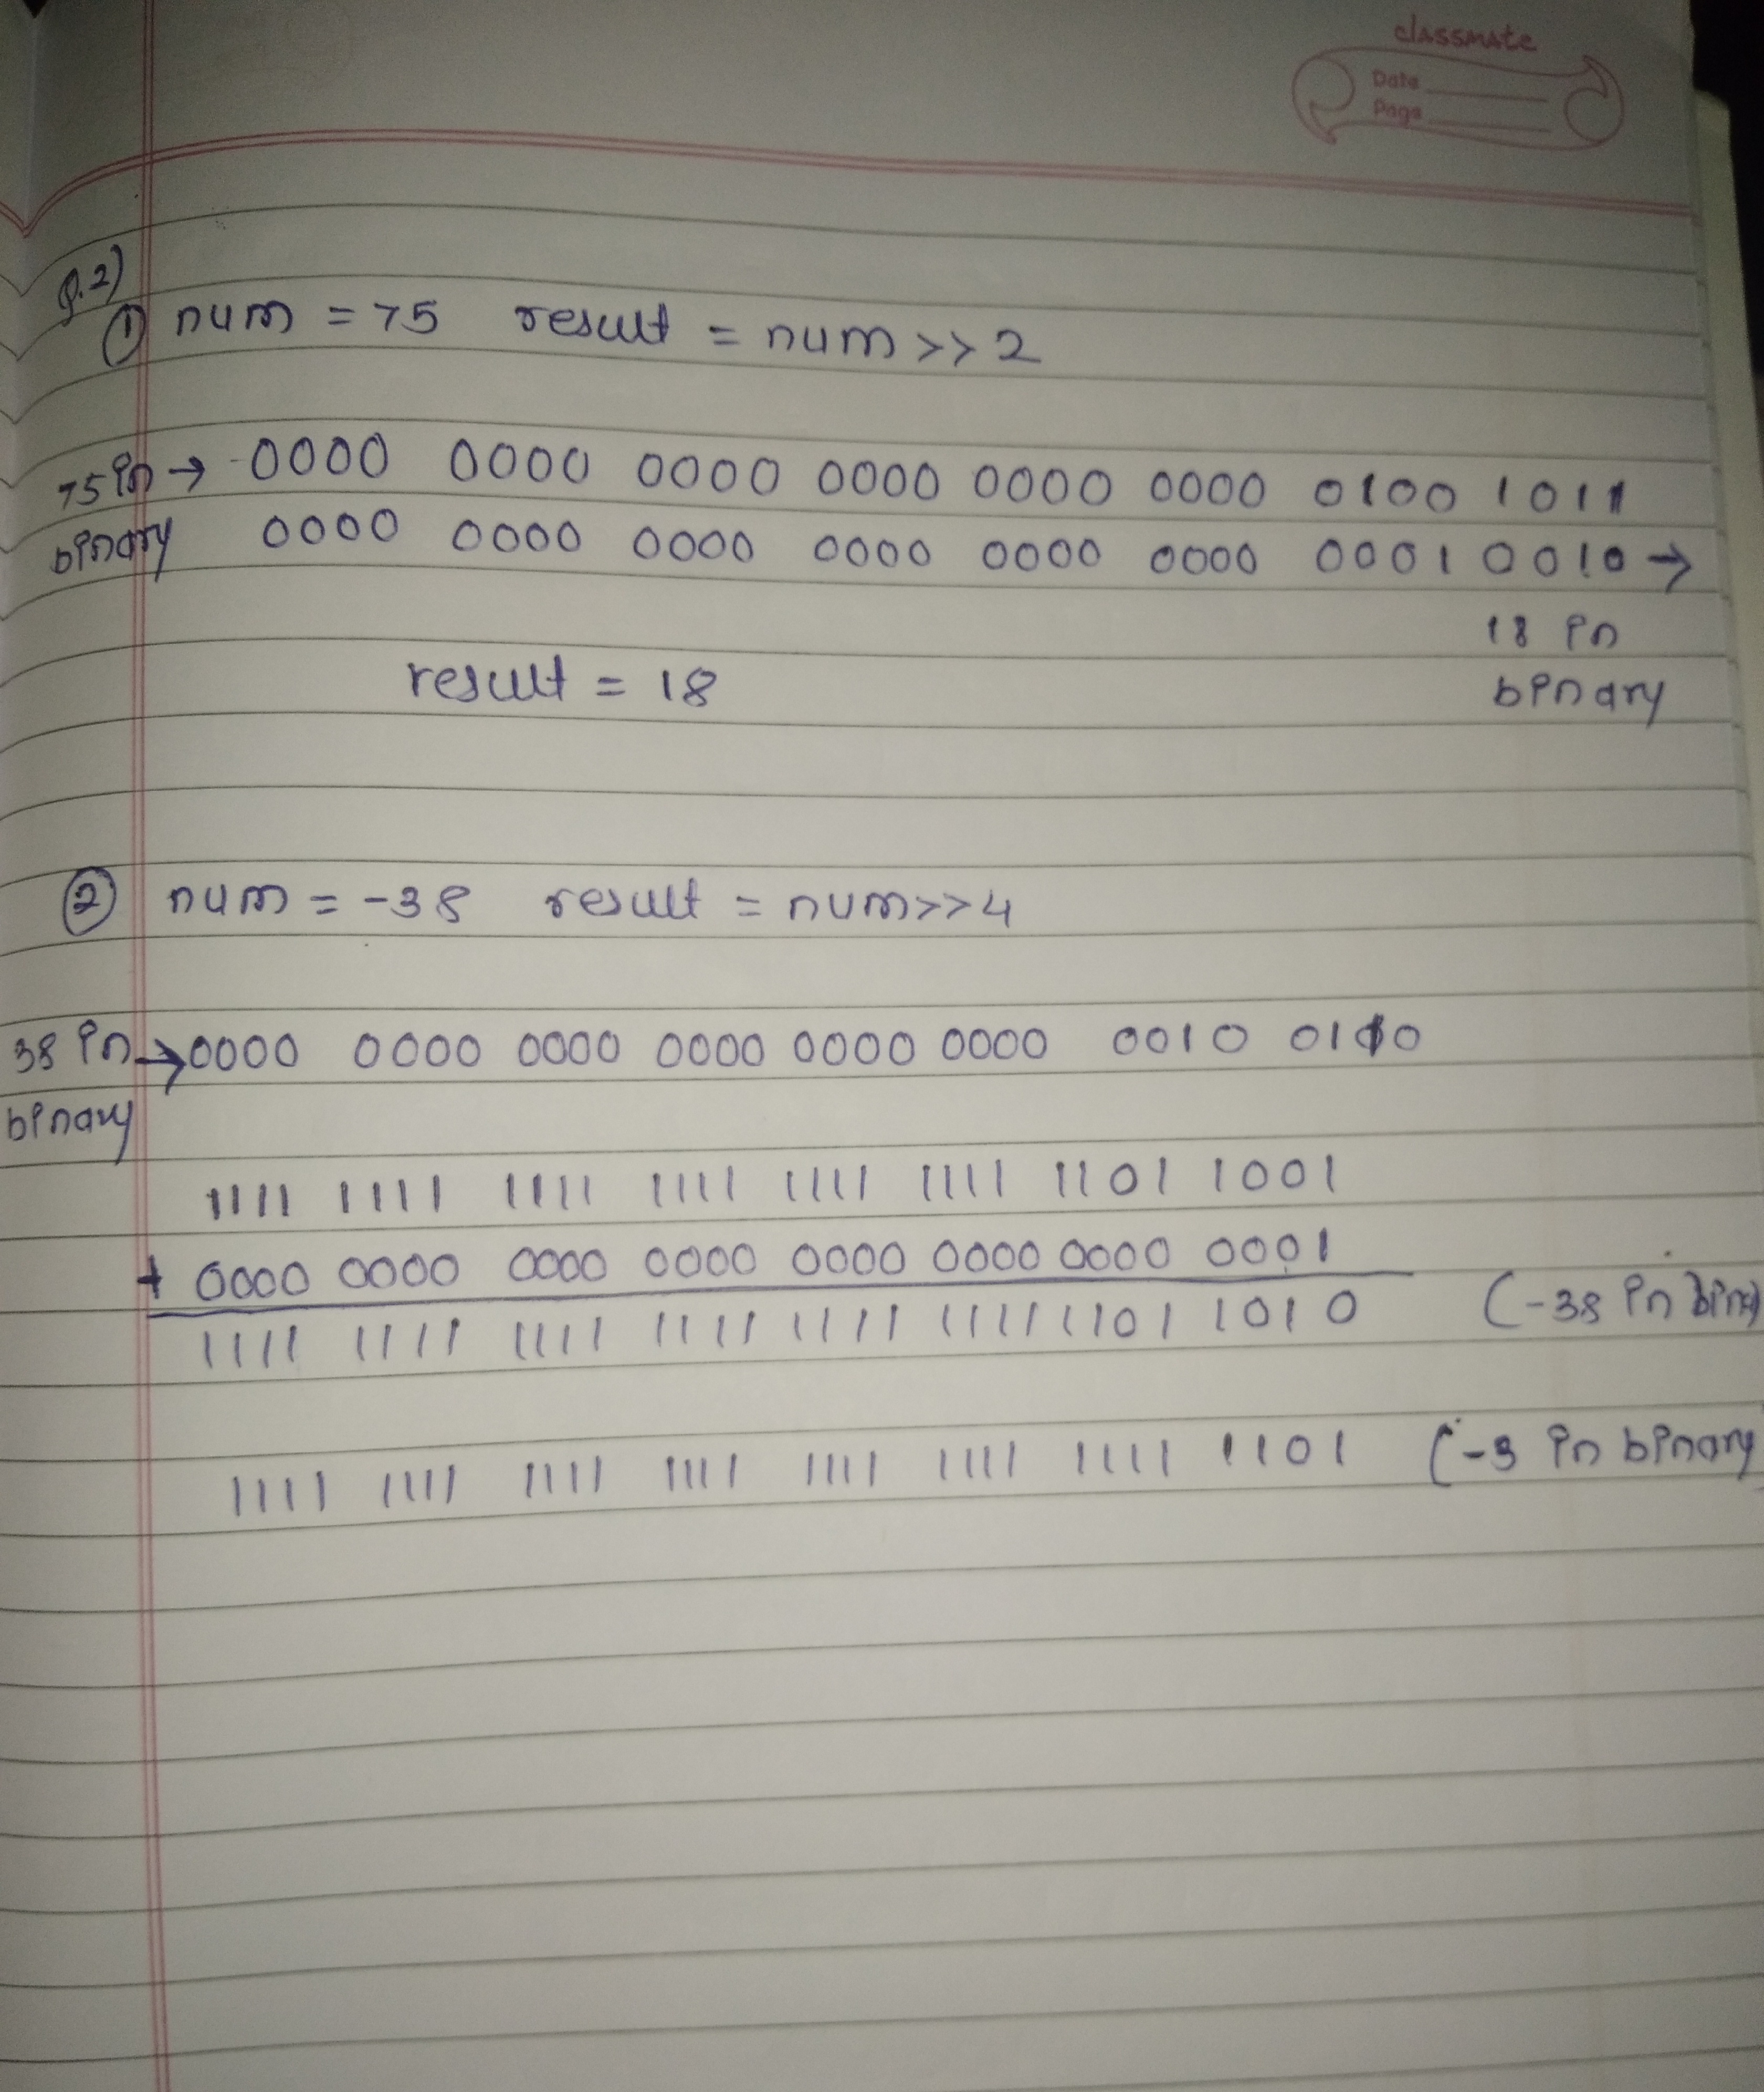 classmate
Date
Page
Q.2)
① num = 75 result = num >> 2
75 in → 0000 0000 0000 0000 0000 0000 0100 1011
binary 0000 0000 0000 0000 0000 0000 0001 0010 →
18 in
result = 18 binary
② num = -38 result = num>>4
38 in → 0000 0000 0000 0000 0000 0000 0010 0110
binary
1111 1111 1111 1111 1111 1111 1101 1001
+ 0000 0000 0000 0000 0000 0000 0000 0001
1111 1111 1111 1111 1111 1111 1101 1010 (-38 in
1111 1111 1111 1111 1111 1111 1111 1101 (-3 in binary